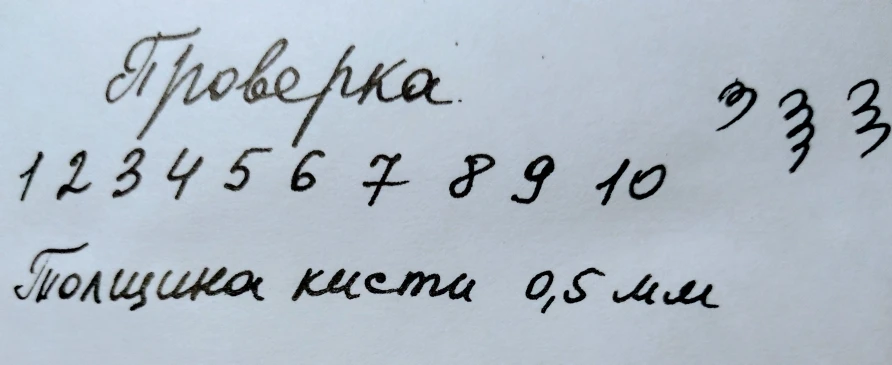 Проверка
1 2 3 4 5 6 7 8 9 10
Толщина кисти 0,5 мм